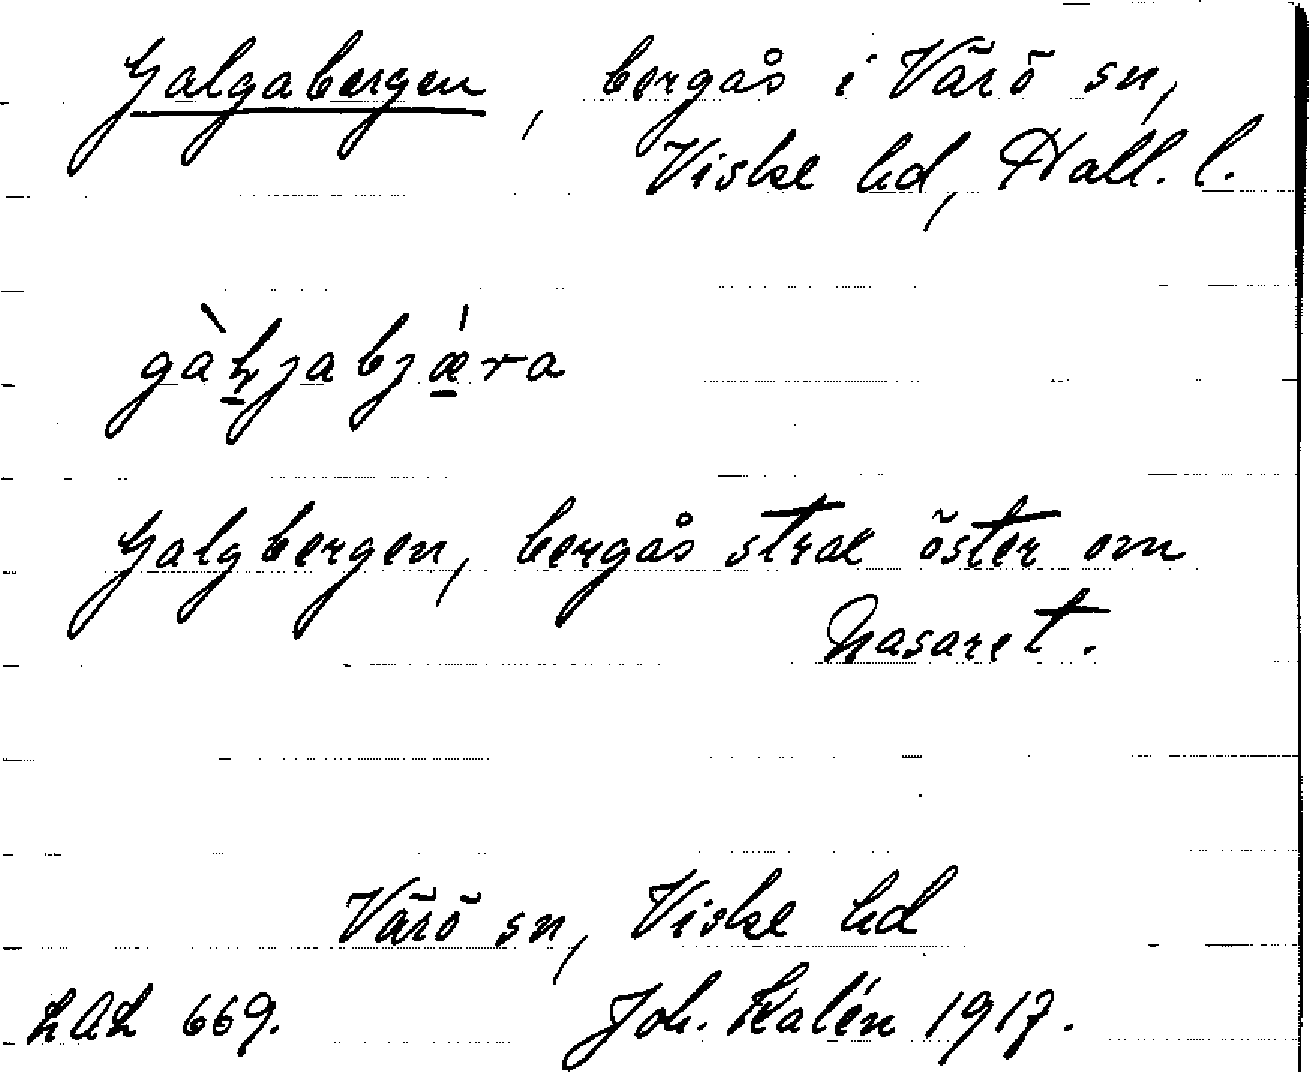 Galgabergen, bergås i Värö sn,
Viske hd, Hall. l.
Galgbergen, bergås strax öster om
Nasaret.
Värö sn, Viske hd
LAL 669. Joh. Kalén 1917.